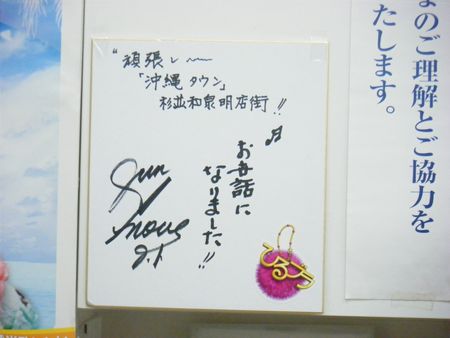 "頑張レ〜
「沖縄タウン」
杉並和泉明店街!!
お世話に
なりました!!
Jun
Inoue
J.I
ひるブラ
のご理解とご協力を
たします。